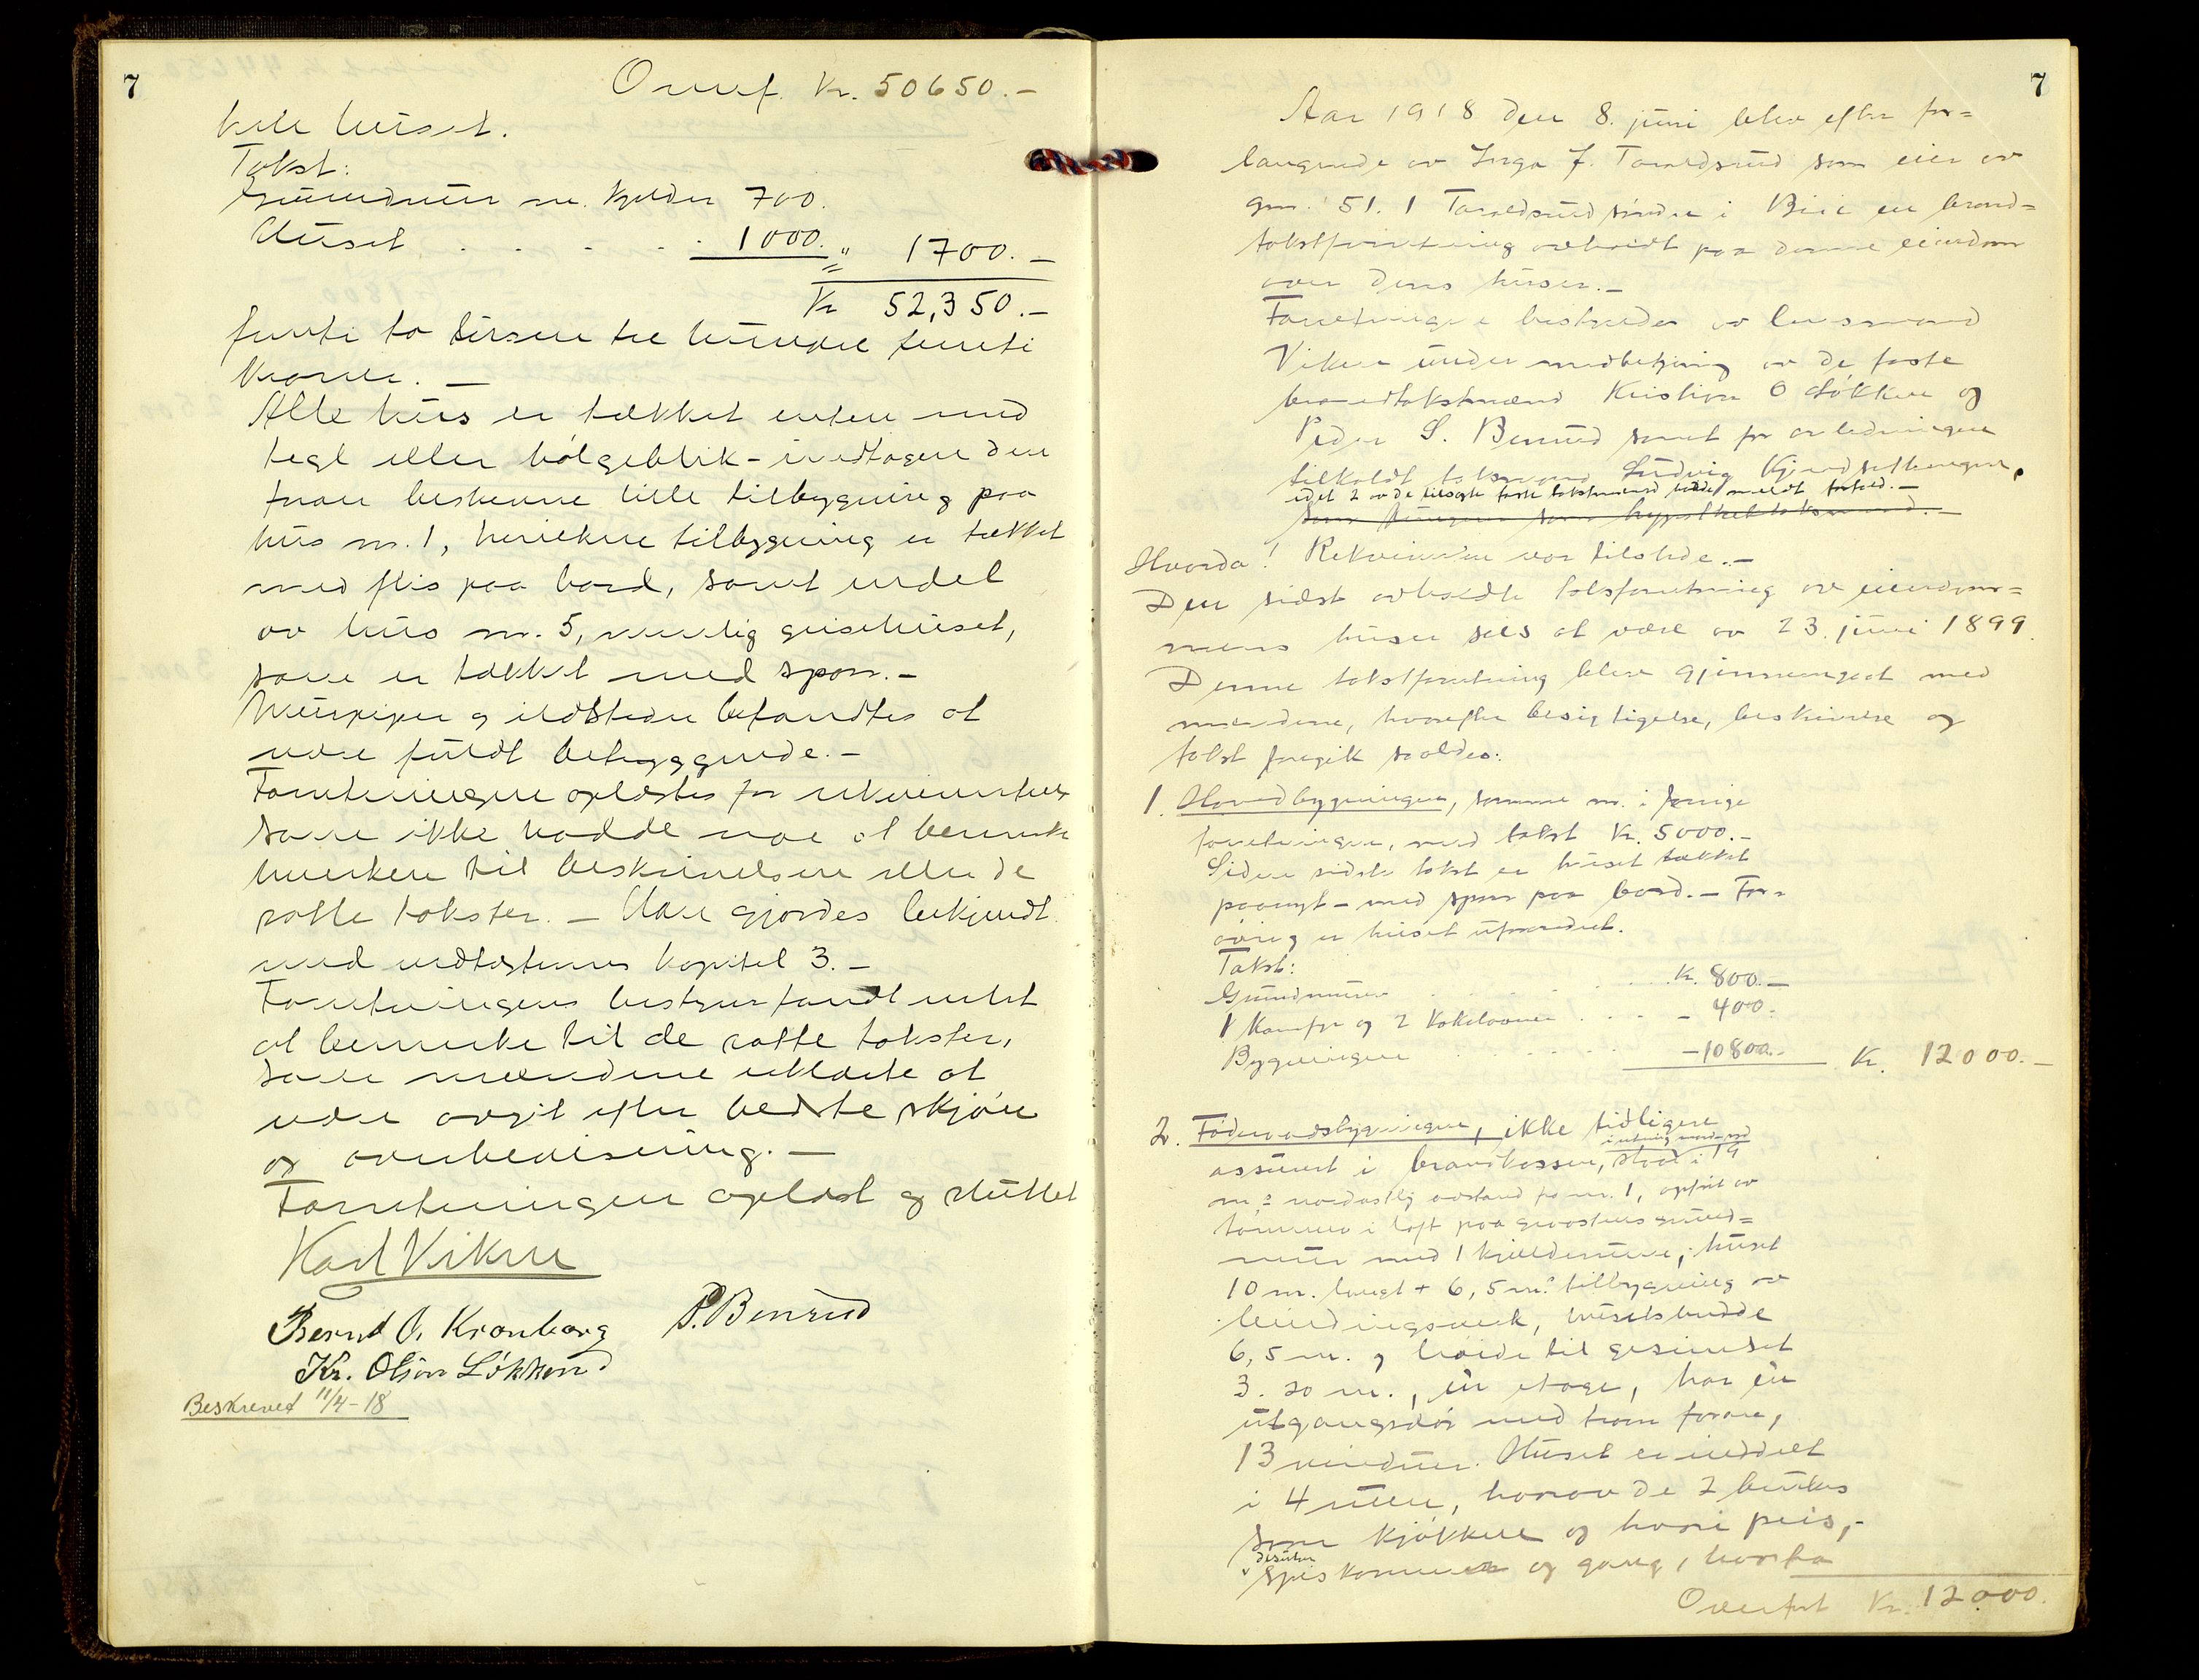 7
Overf. Kr. 50650.-
hele huset.
Takst:
Grundmur m. kjelder 700.
Huset . . . . . 1000. " 1700.-
Kr 52,350.-
femti to tusen tre hundre femti
kroner. -
Alle hus er tækket enten med
tegl eller bølgeblik - undtagen den
foran beskrevne lille tilbygning paa
hus nr. 1, hvilken tilbygning er tækket
med flis paa bord, samt endel
av hus nr. 5, nemlig grisehuset,
som er tækket med spon.-
Murpiper og ildsteder befandtes at
være fuldt betryggende.-
Forretningen oplæstes for rekvirenten
som ikke hadde noe at bemerke
hverken til beskrivelsen eller de
satte takster. - Han gjordes bekjendt
med vedtægternes kapitel 3.-
Forretningens bestyrer fandt intet
at bemerke til de satte takster,
som mændene erklærte at
være avgit efter bedste skjøn
og overbevisning.-
Forretningen oplæst og sluttet
Karl Viken
Bernt O. Kronborg P. Benrud
Kr. Olson Løkken
Beskrevet 11/4-18
7
Aar 1918 den 8. juni blev efter for=
langende av Inga J. Taraldsrud som eier av
gnr. 51. 1 Taraldsrud søndre i Biri en brand=
takstforretning avholdt paa denne eiendom
over dens huser.-
Forretningen bestyredes av lensmand
Viken under medbetjening av de faste
brandtakstmænd Kristian O Løkken og
Peder S. Benrud samt for anledningen
tilkaldt takstmand Ludvig
idet 2 av de tilsagte faste takstmænd hadde meldt forfald.-
som fungerer som hypothektakstmand.-
Hvorda! Rekvirenten var tilstede.-
Den sidst avholdte takstforretning over eiendom=
mens huser sees at være av 23. juni 1899.
Denne takstforretning blev gjennemgaat med
mændene, hvorefter besigtigelse, beskrivelse og
takst foregik saaledes:
1. Hovedbygningen, samme nr. i forrige
forretningen, med takst Kr. 5000.-
Siden sidste takst er huset tækket
paanyt - med spon paa bord.- For=
øvrig er huset uforandret.
Takst:
Grundmuren . . . . Kr. 800.-
1 Komfyr og 2 kakelovner . . . - 400.
Bygningen . . . . -10800.- Kr. 12000.-
2. Føderaadsbygningen, ikke tidligere
assurert i brandkassen, i 19
m.s nordostlig avstand fra nr. 1, opført av
tømmer i laft paa graastens grund=
mur med 1 kjælderrum, huset
10 m. langt + 6,5 m.s tilbygning av
bindingsverk, husets bredde
6,5 m. og høide til gesimset
3.20 m., en etage, har en
utgangsdør med tram foran,
13 vinduer. Huset er inddelt
i 4 rum, hvorav de 2 brukes
som kjøkken og hvori peis,-
desuten
spiskammer og gang, hvorfra
Overført Kr. 12000.